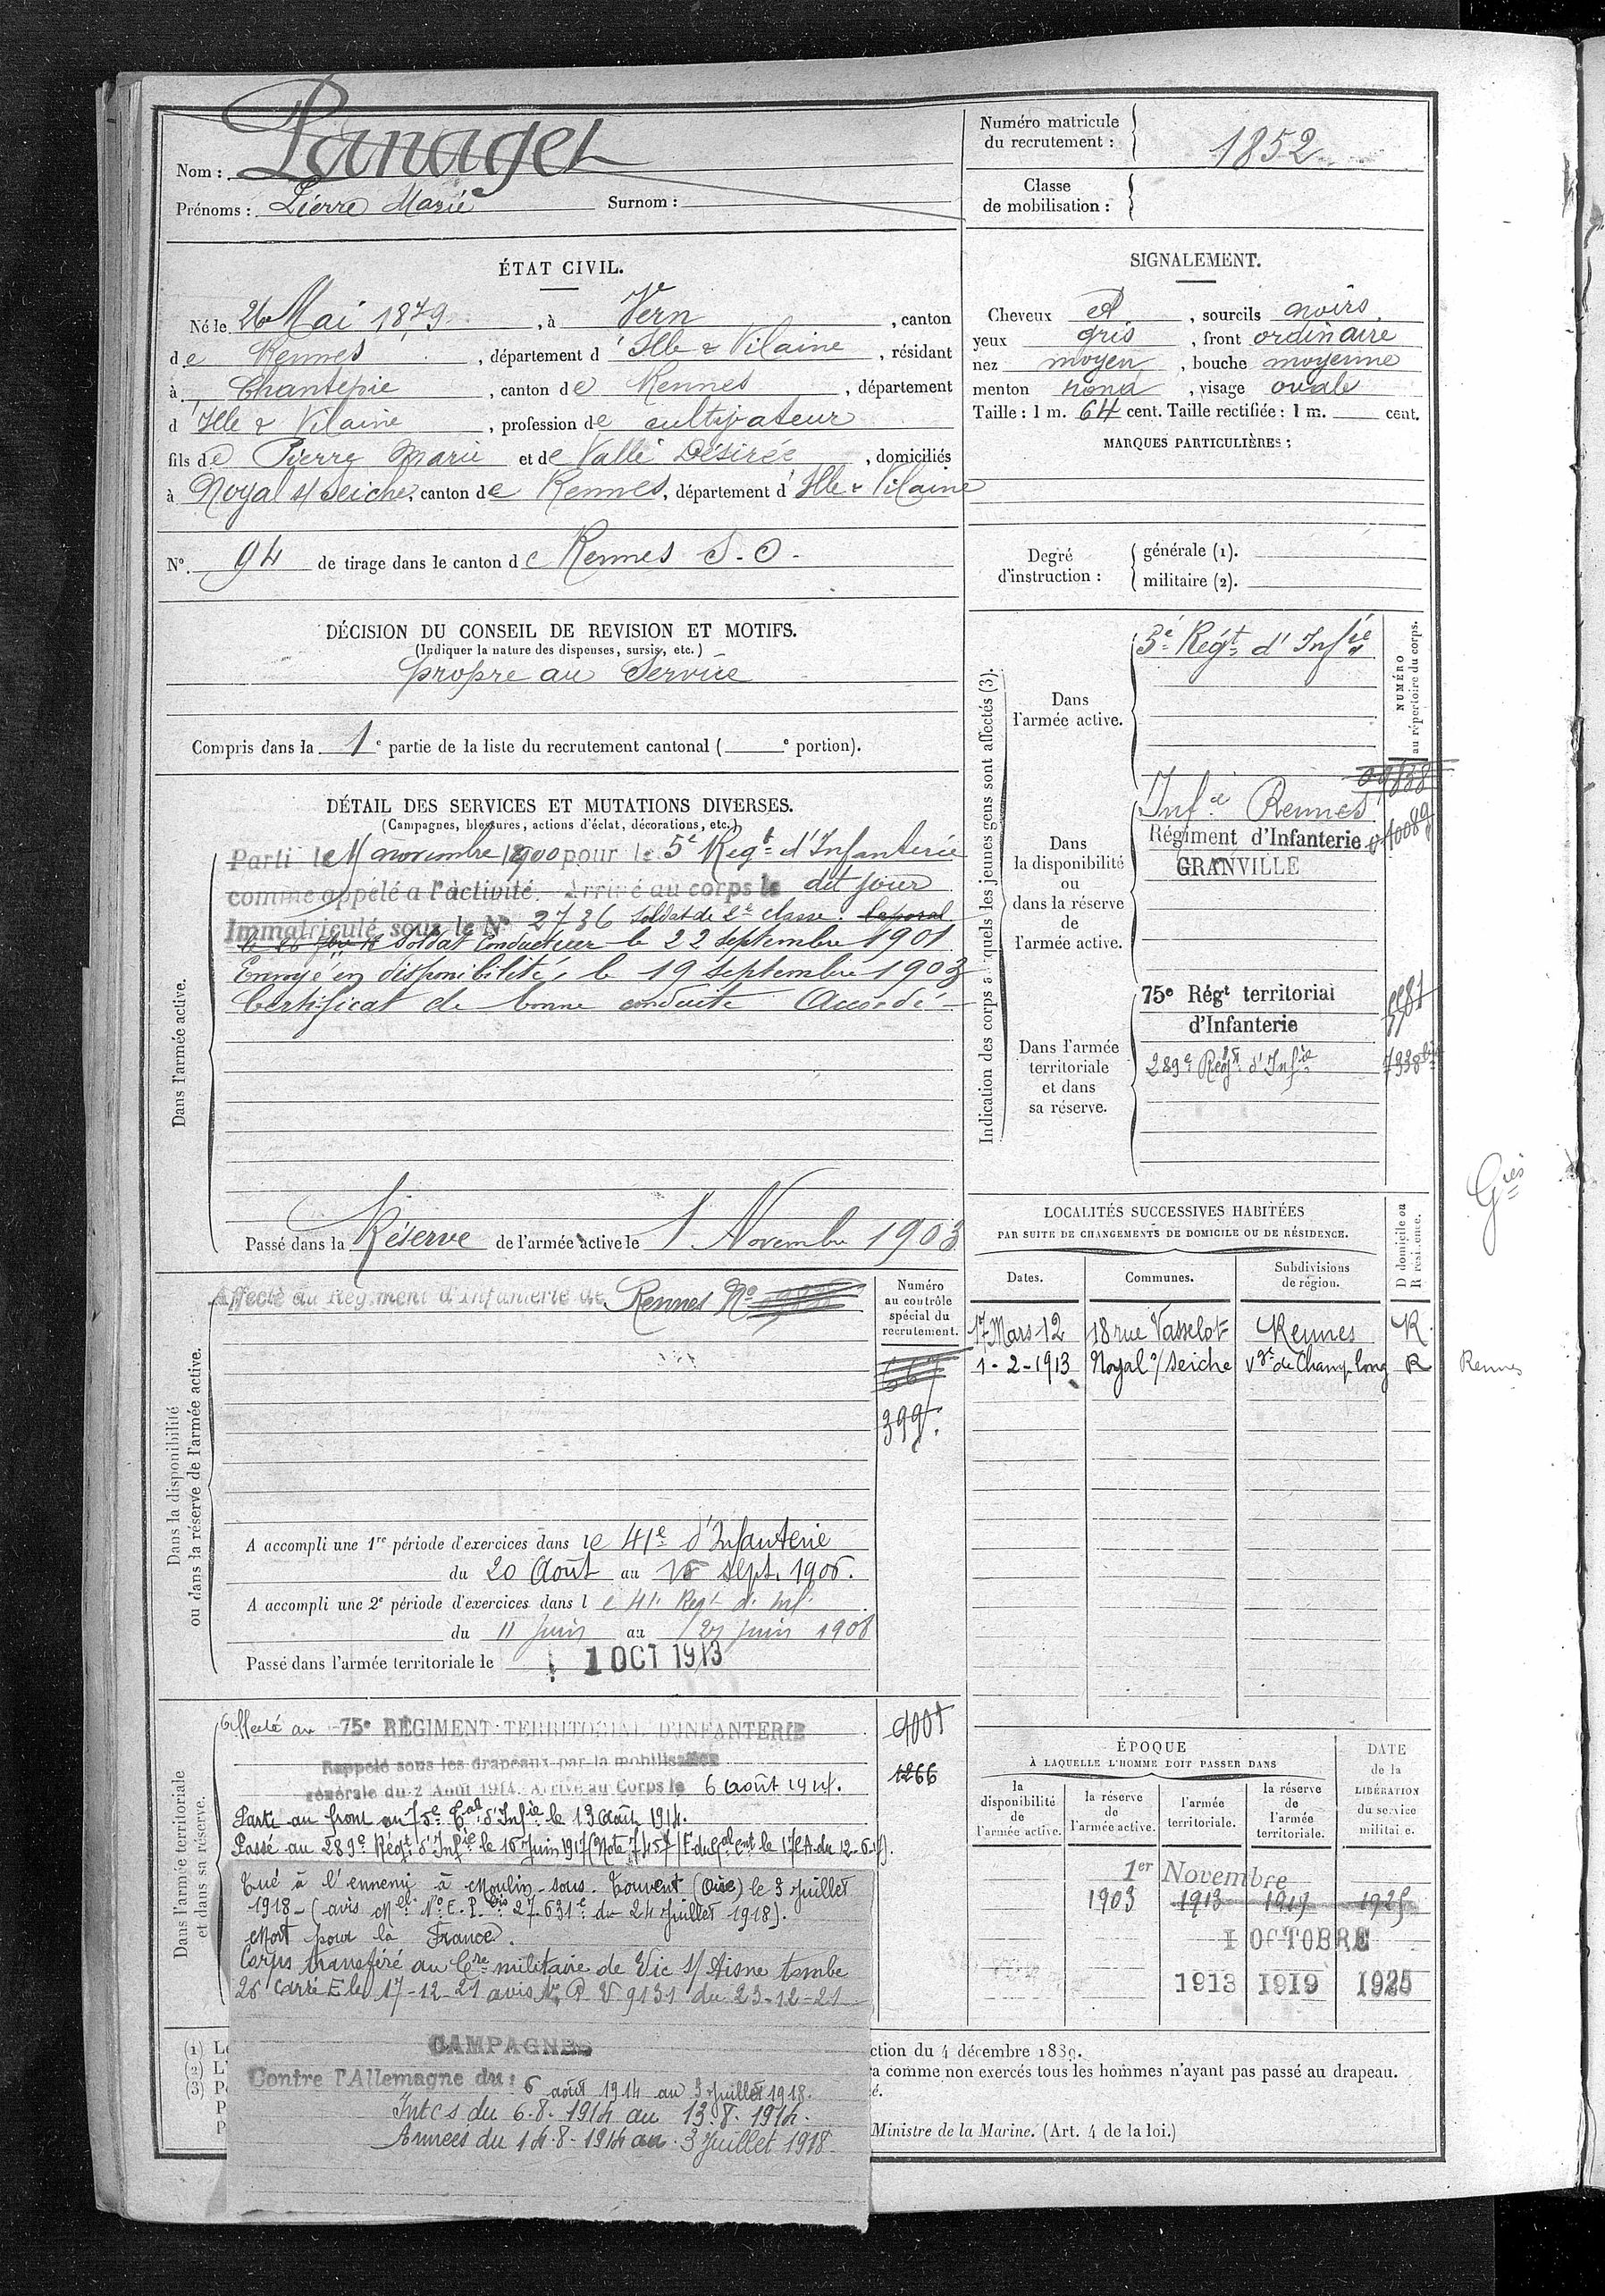 Nom : Panaget
Prénoms : Pierre Marie Surnom :
Numéro matricule
du recrutement : 1852
Classe
de mobilisation :
ÉTAT CIVIL.
Né le 26 Mai 1879, à Vern, canton
de Rennes, département d'Ille & Vilaine, résidant
à Chantepie, canton de Rennes, département
d'Ille & Vilaine, profession de cultivateur
fils de Pierre Marie et de Vallé Désirée, domiciliés
à Noyal s/ Seiche, canton de Rennes, département d'Ille & Vilaine
N° 94 de tirage dans le canton de Rennes S.-O.
DÉCISION DU CONSEIL DE REVISION ET MOTIFS.
(Indiquer la nature des dispenses, sursis, etc.)
propre au Service
Compris dans la 1e partie de la liste du recrutement cantonal ( e portion).
SIGNALEMENT.
Cheveux et, sourcils noirs
yeux gris, front ordinaire
nez moyen, bouche moyenne
menton rond, visage ovale
Taille : 1 m. 64 cent. Taille rectifiée : 1 m. cent.
MARQUES PARTICULIÈRES :
Degré
d'instruction :
générale (1).
militaire (2).
DÉTAIL DES SERVICES ET MUTATIONS DIVERSES.
(Campagnes, blessures, actions d'éclat, décorations, etc.)
Dans l'armée active.
Parti le novembre 1900 pour le 5e Régt d'Infanterie
comme appelé a l'activité. Arrivé au corps le dit jour
Immatriculé sous le N° 2736 Soldat de 2e classe. Caporal
Soldat Conducteur le 22 septembre 1901
Envoyé en disponibilité, le 19 septembre 1903
Certificat de bonne conduite Accordé
Passé dans la Réserve de l'armée active le 1 Novembre 1903
Indication des corps auxquels les jeunes gens sont affectés (3).
NUMÉRO
au répertoire du corps.
Dans
l'armée active.
5e Régt d'Infie
Dans
la disponibilité
ou
dans la réserve
de
l'armée active.
Infie Rennes
Régiment d'Infanterie
GRANVILLE
Dans l'armée
territoriale
et dans
sa réserve.
75e Régt territorial
d'Infanterie
289e Régt d'Infie
Gies
LOCALITÉS SUCCESSIVES HABITÉES
PAR SUITE DE CHANGEMENTS DE DOMICILE OU DE RÉSIDENCE.
D domicile ou
R résidence.
Dates. Communes. Subdivisions
de région.
17 Mars 12 18 rue Vasselot Rennes R.
1-2-1913 Noyal s/ Seiche vge de Champ long R Rennes
Dans la disponibilité
ou dans la réserve de l'armée active.
Affecté au Régiment d'Infanterie de Rennes No
Numéro
au contrôle
spécial du
recrutement.
667
A accompli une 1re période d'exercices dans le 41e d'Infanterie
du 20 Août au sept. 1906.
A accompli une 2e période d'exercices dans le 41e Regt d'Inf.
du 11 juin au 27 juin 1908
Passé dans l'armée territoriale le 1 OCT 1913
Dans l'armée territoriale
et dans sa réserve.
Affecté au 75e RÉGIMENT TERRITORIAL D'INFANTERIE
Rappelé sous les drapeaux par la mobilisation
générale du 2 Août 1914. Arrivé au Corps le 6 août 1914.
1266
Parti au front au 75e Tal d'Infie le 13 Août 1914.
Passé au 289e Régt d'Infie le 16 Juin 1917
Tué à l'ennemi à Moulin-sous-Touvent (Oise) le 3 Juillet
1918 - (avis Mel No E.P. 27.631e du 24 Juillet 1918).
Mort pour la France.
Corps transféré au Cre militaire de Vic s/ Aisne tombe
26 carré E le 17-12-21 avis M. P. V 9131 du 23-12-21
CAMPAGNES
Contre l'Allemagne du : 6 août 1914 au 3 Juillet 1918.
Int cs du 6.8.1914 au 13.8.1914.
Armées du 14.8-1914 au 3 Juillet 1918.
ÉPOQUE
À LAQUELLE L'HOMME DOIT PASSER DANS
DATE
de la
LIBÉRATION
du service
militaire.
la
disponibilité
de
l'armée active.
la réserve
de
l'armée active.
l'armée
territoriale.
la réserve
de
l'armée
territoriale.
1er Novembre
1903 1913 1919 1925
1 OCTOBRE
1913 1919 1925
(1) Le
(2) L'
(3) P
ction du 4 décembre 1889.
a comme non exercés tous les hommes n'ayant pas passé au drapeau.
é.
Ministre de la Marine. (Art. 4 de la loi.)